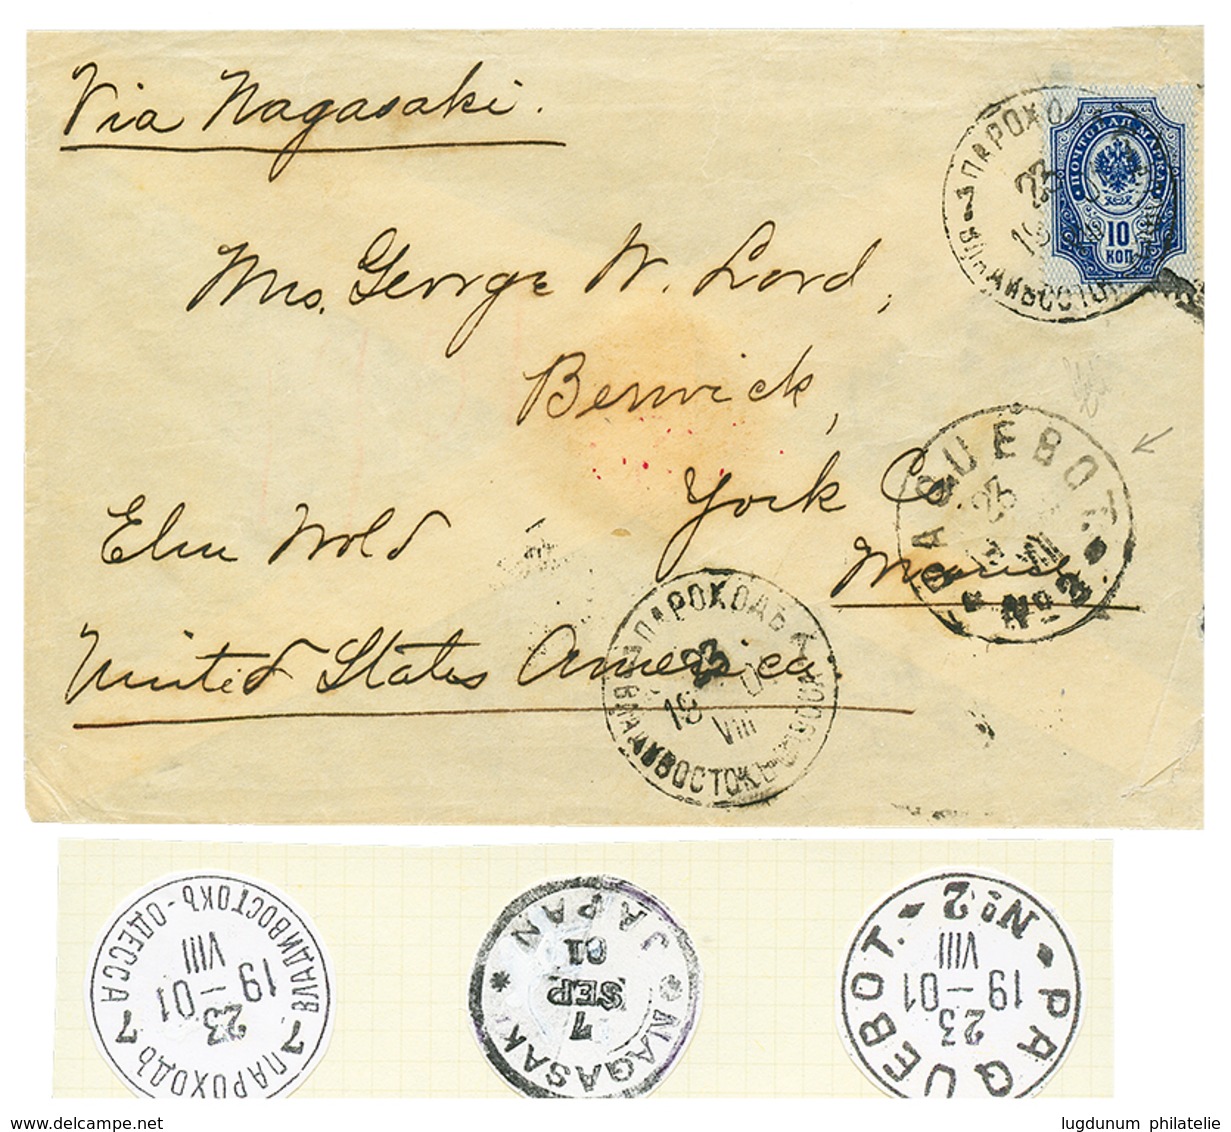 Via Nagasaki.
ПАРОХОДЪ 7 ВЛАДИВОСТОКЪ
23
19
ПОЧТОВАЯ МАРКА
10
КОП
Mrs. George W. Lord,
Berwick,
York Co
Elm Wold
Maine.
United States America.
PAQUEBOT. № 2
23
VIII
ПАРОХОДЪ 7 ВЛАДИВОСТОКЪ-ОДЕССА 7
23
19-01
VIII
ПАРОХОДЪ 7 ВЛАДИВОСТОКЪ-ОДЕССА 7
23
19-01
VIII
NAGASAKI JAPAN
7
SEP
01
PAQUEBOT. № 2
23
19-01
VIII
www.delcampe.net
lugdunum philatelie